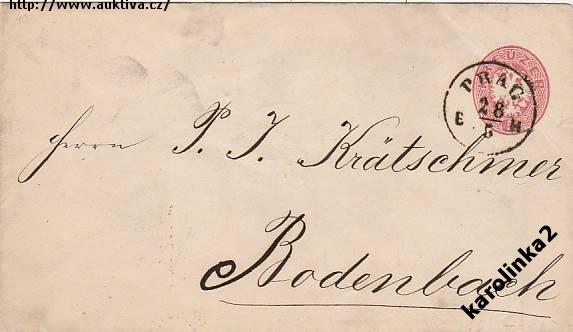 http://www.auktiva.cz/
PRAG
28
6
E H
Herrn P. J. Krätschmer
Bodenbach
karolinka2